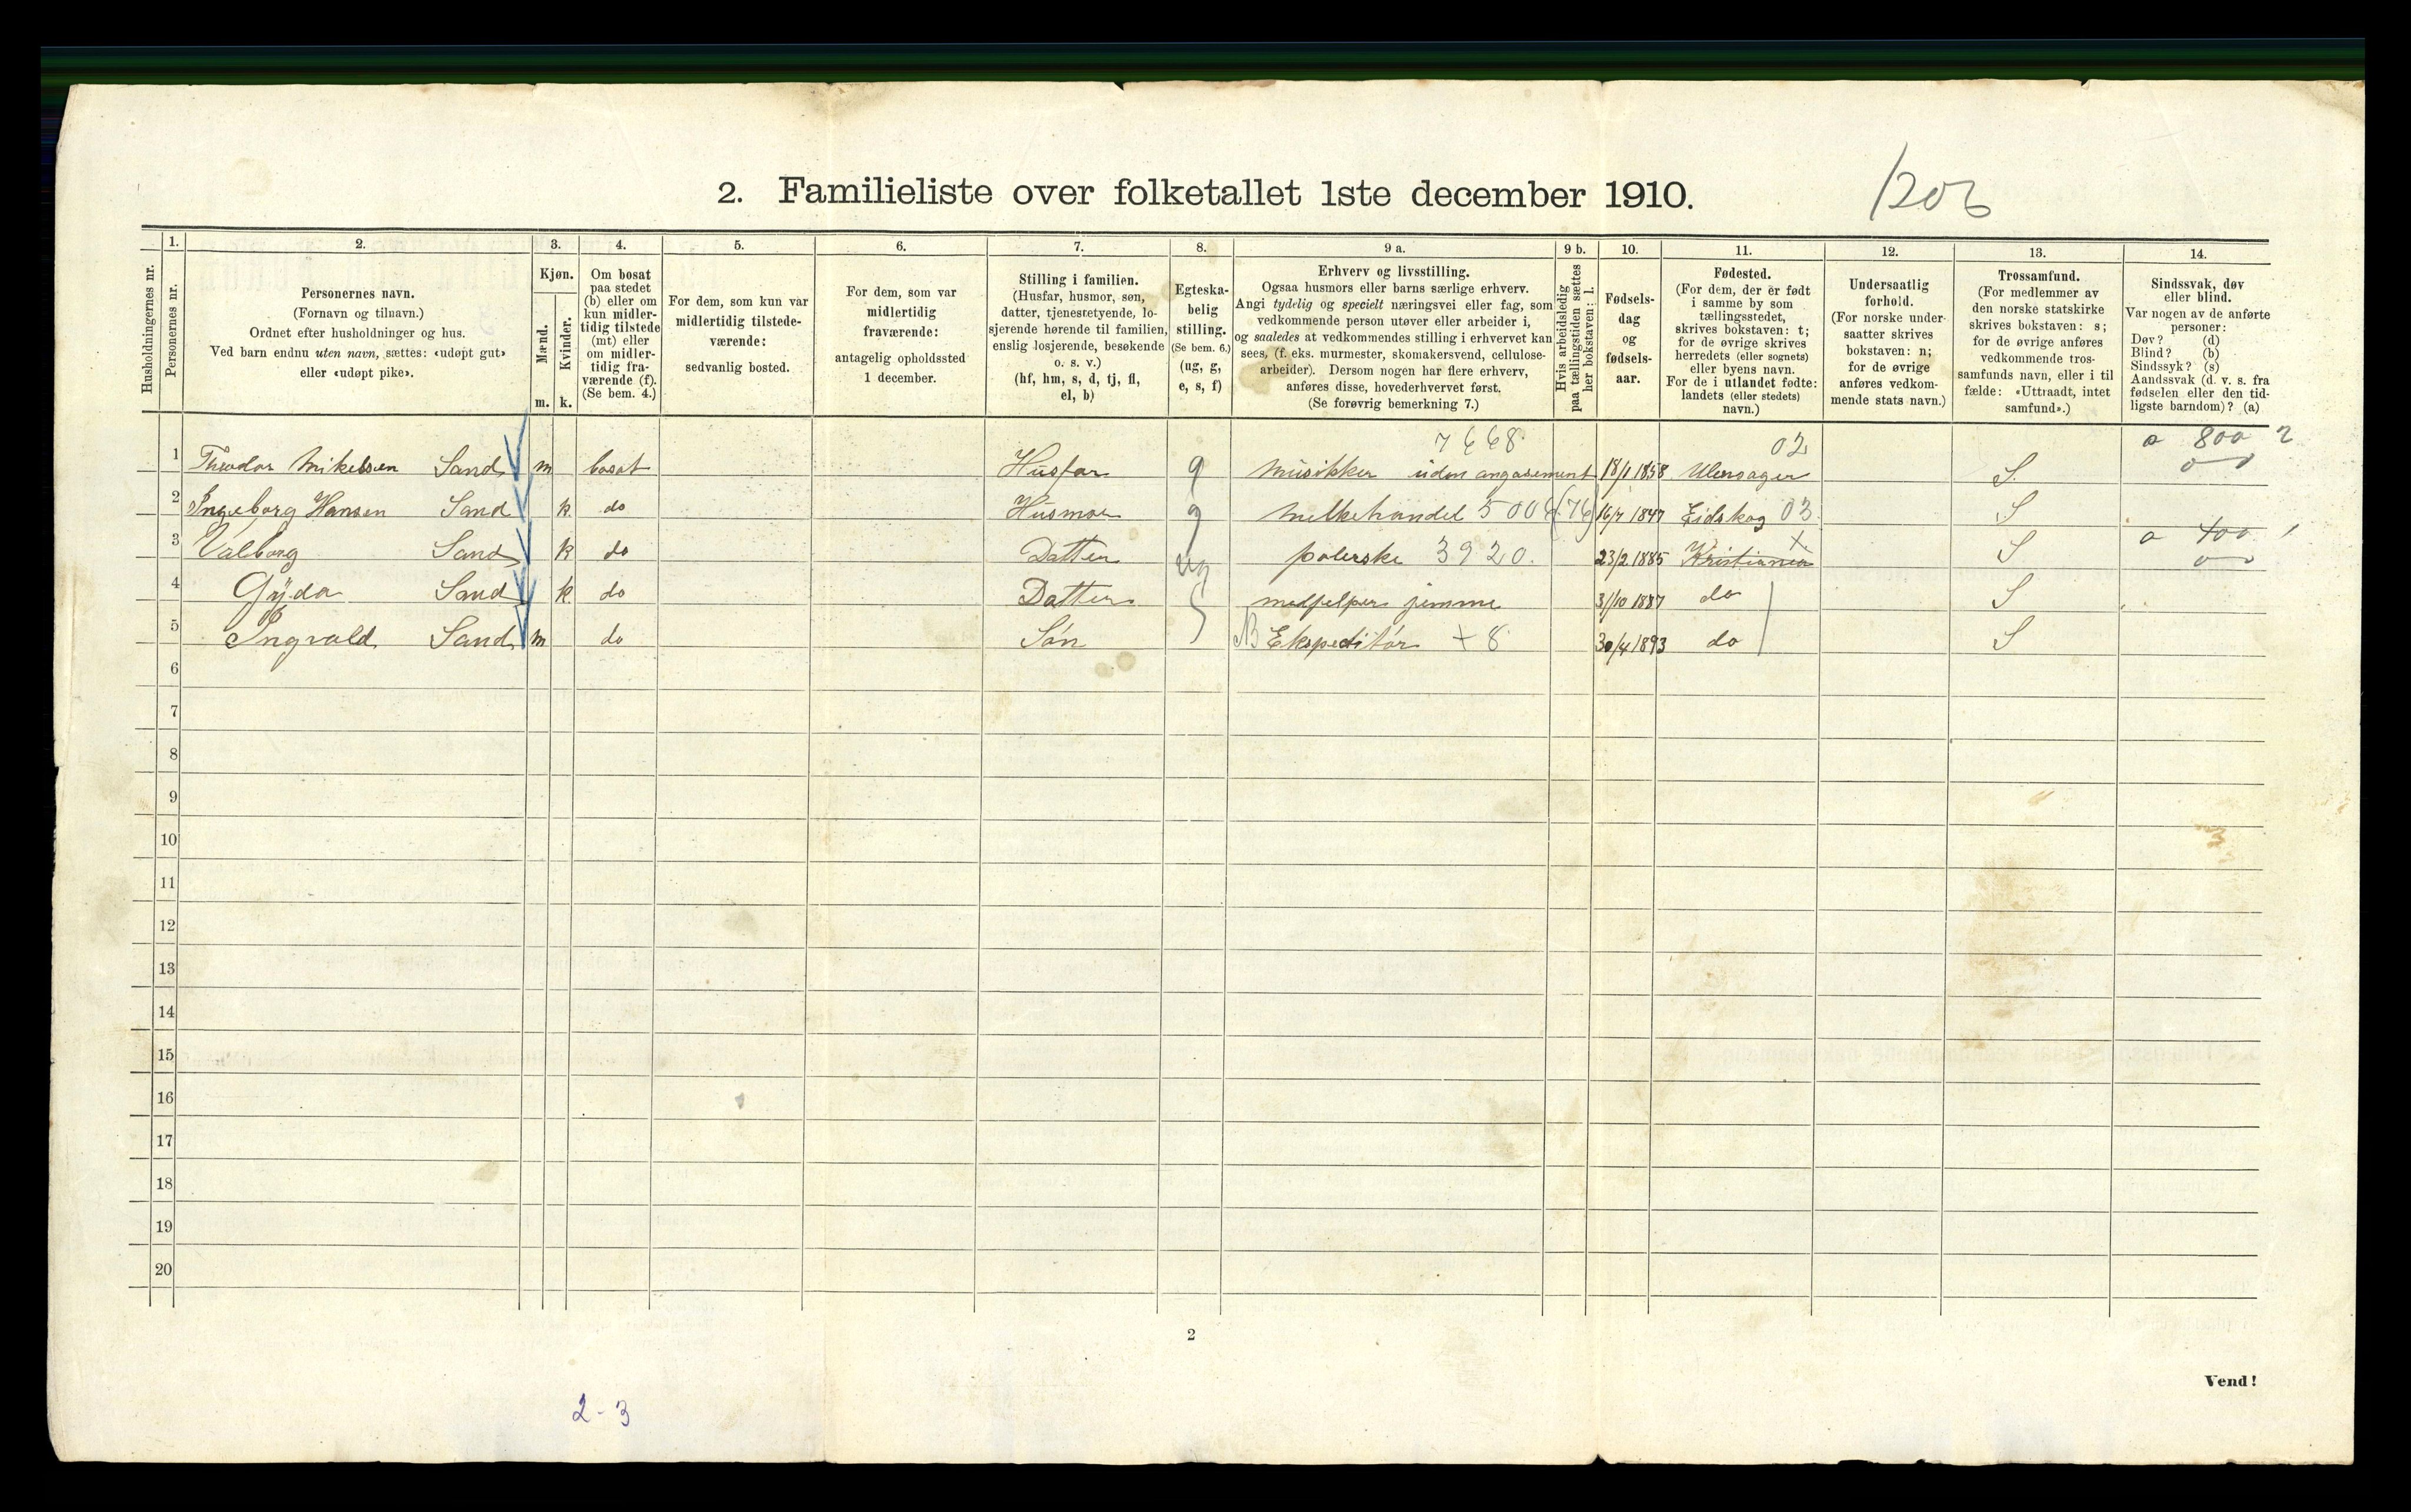 2. Familieliste over folketallet 1ste december 1910.
1206
Husholdningernes nr.
1. Personernes nr.
2. Personernes navn. (Fornavn og tilnavn.) Ordnet efter husholdninger og hus. Ved barn endnu uten navn, sættes: «udøpt gut» eller «udøpt pike».
3. Kjøn. Mænd. m. Kvinder. k.
4. Om bosat paa stedet (b) eller om kun midlertidig tilstede (mt) eller om midlertidig fraværende (f). (Se bem. 4.)
5. For dem, som kun var midlertidig tilstedeværende: sedvanlig bosted.
6. For dem, som var midlertidig fraværende: antagelig opholdssted 1 december.
7. Stilling i familien. (Husfar, husmor, søn, datter, tjenestetyende, losjerende hørende til familien, enslig losjerende, besøkende o. s. v.) (hf, hm, s, d, tj, fl, el, b)
8. Egteskabelig stilling. (Se bem. 6.) (ug, g, e, s, f)
9 a. Erhverv og livsstilling. Ogsaa husmors eller barns særlige erhverv. Angi tydelig og specielt næringsvei eller fag, som vedkommende person utøver eller arbeider i, og saaledes at vedkommendes stilling i erhvervet kan sees, (f. eks. murmester, skomakersvend, cellulosearbeider). Dersom nogen har flere erhverv, anføres disse, hovederhvervet først. (Se forøvrig bemerkning 7.)
9 b. Hvis arbeidsledig paa tællingstiden sættes her bokstaven: l.
10. Fødselsdag og fødselsaar.
11. Fødested. (For dem, der er født i samme by som tællingsstedet, skrives bokstaven: t; for de øvrige skrives herredets (eller sognets) eller byens navn. For de i utlandet fødte: landets (eller stedets) navn.)
12. Undersaatlig forhold. (For norske undersaatter skrives bokstaven: n; for de øvrige anføres vedkommende stats navn.)
13. Trossamfund. (For medlemmer av den norske statskirke skrives bokstaven: s; for de øvrige anføres vedkommende trossamfunds navn, eller i tilfælde: «Uttraadt, intet samfund».)
14. Sindssvak, døv eller blind. Var nogen av de anførte personer: Døv? (d) Blind? (b) Sindssyk? (s) Aandssvak (d. v. s. fra fødselen eller den tidligste barndom)? (a)
7668 02 a 800 2
1 Theodor Mikelsen Sand m bosat Husfar g Musikker uden angasement 18/1 1858 Ulensager S.
2 Ingeborg Hansen Sand k do Husmor g Melkehandel 5006 (76) 16/7 1847 Eidskog 03 S
a 400
3 Valborg Sand k do Datter ug polerske 3920. 23/2 1885 Kristiania S
4 Gÿda Sand k do Datter medjelper jemme 31/10 1887 do S
5 Ingvald Sand m do Sön Ekspeditör + 8 30/4 1893 do S
6
7
8
9
10
11
12
13
14
15
16
17
18
19
20
2
Vend!
2-3